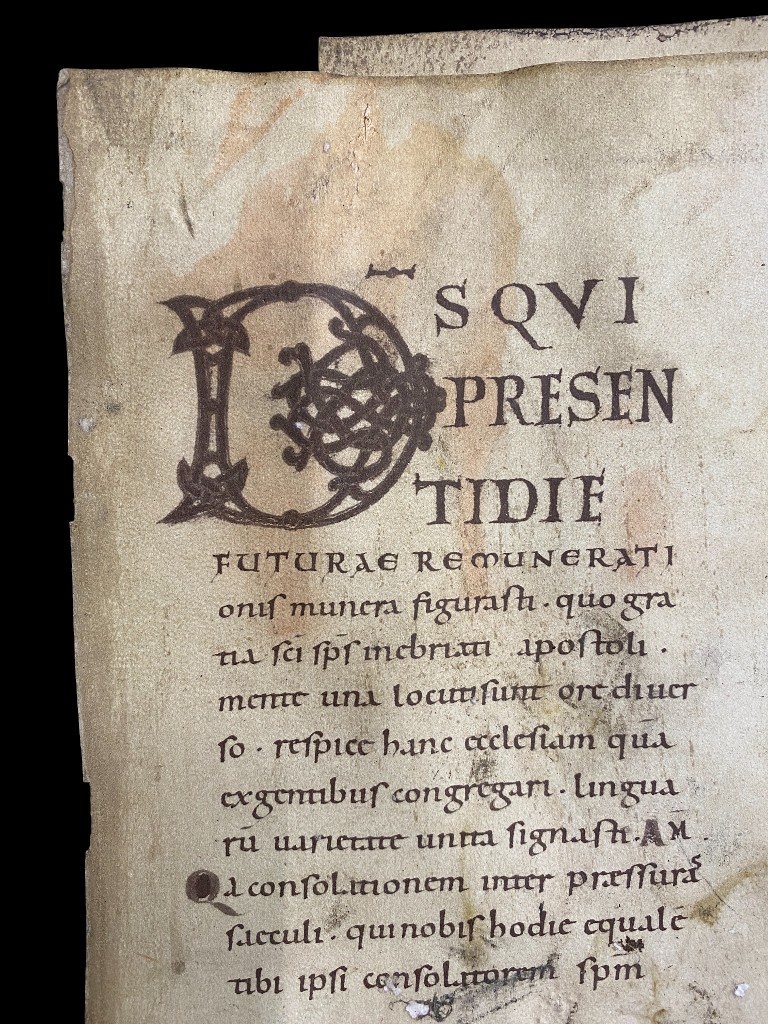 D̅S QVI
PRESEN
TIDIE
FUTURAE REMUNERATI
onis munera figurasti · quo gra
tia sci sps inebriati apostoli ·
mente una locuti sunt ore diuer
so · respice hanc ecclesiam quā
ex gentibus congregari · lingua
rū uarietate unita signasti. AM̅
Qa consolationem inter præssuras
saeculi · qui nobis hodie equalē
tibi ipsi consolatorem spm̄